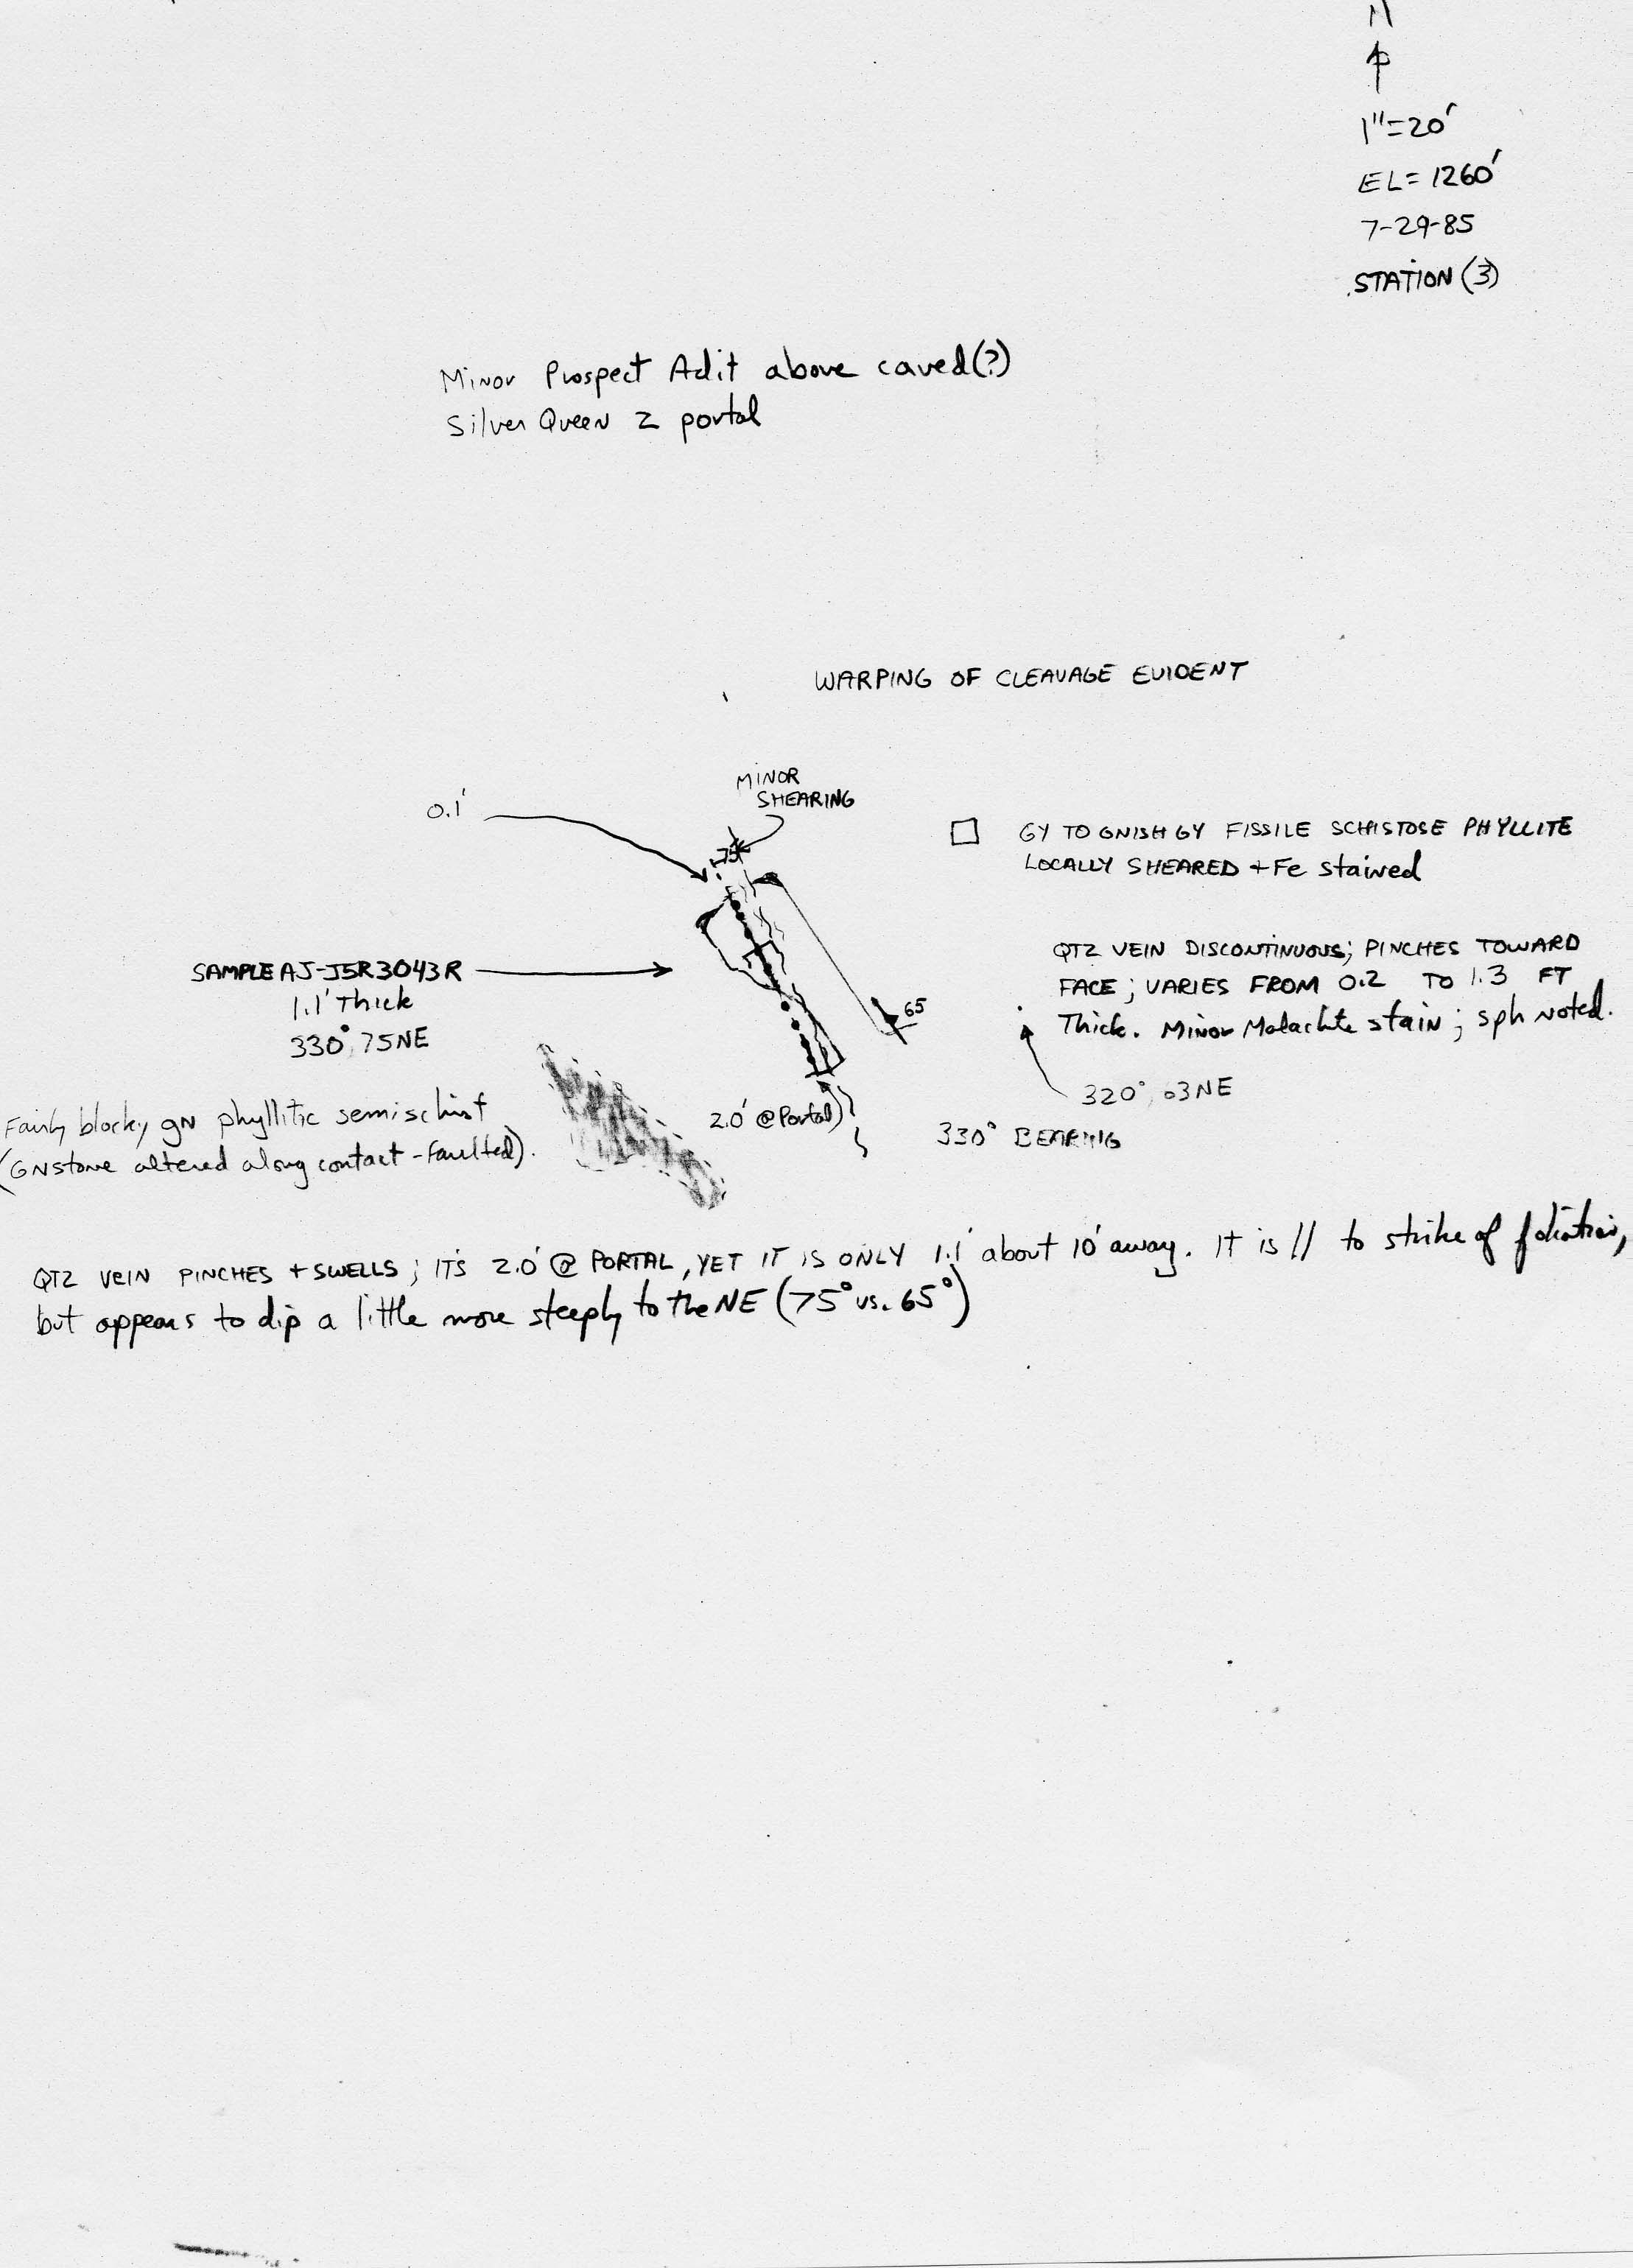 N
1"=20'
EL= 1260'
7-29-85
STATION (3)
Minor Prospect Adit above caved(?)
Silver Queen 2 portal
WARPING OF CLEAVAGE EVIDENT
MINOR
SHEARING
0.1'
75
GY TO GNISH GY FISSILE SCHISTOSE PHYLLITE
LOCALLY SHEARED + Fe stained
QTZ VEIN DISCONTINUOUS; PINCHES TOWARD
FACE; VARIES FROM 0.2 TO 1.3 FT
Thick. Minor Malachite stain; sph noted.
SAMPLE AJ-J5R3043R
1.1' Thick
330°, 75NE
65
320°, 63NE
330° BEARING
2.0' @ Portal
Fairly blocky gn phyllitic semischist
(GNstone altered along contact - faulted).
QTZ VEIN PINCHES + SWELLS; IT'S 2.0' @ PORTAL, YET IT IS ONLY 1.1' about 10' away. It is // to strike of foliation,
but appears to dip a little more steeply to the NE (75° vs. 65°)